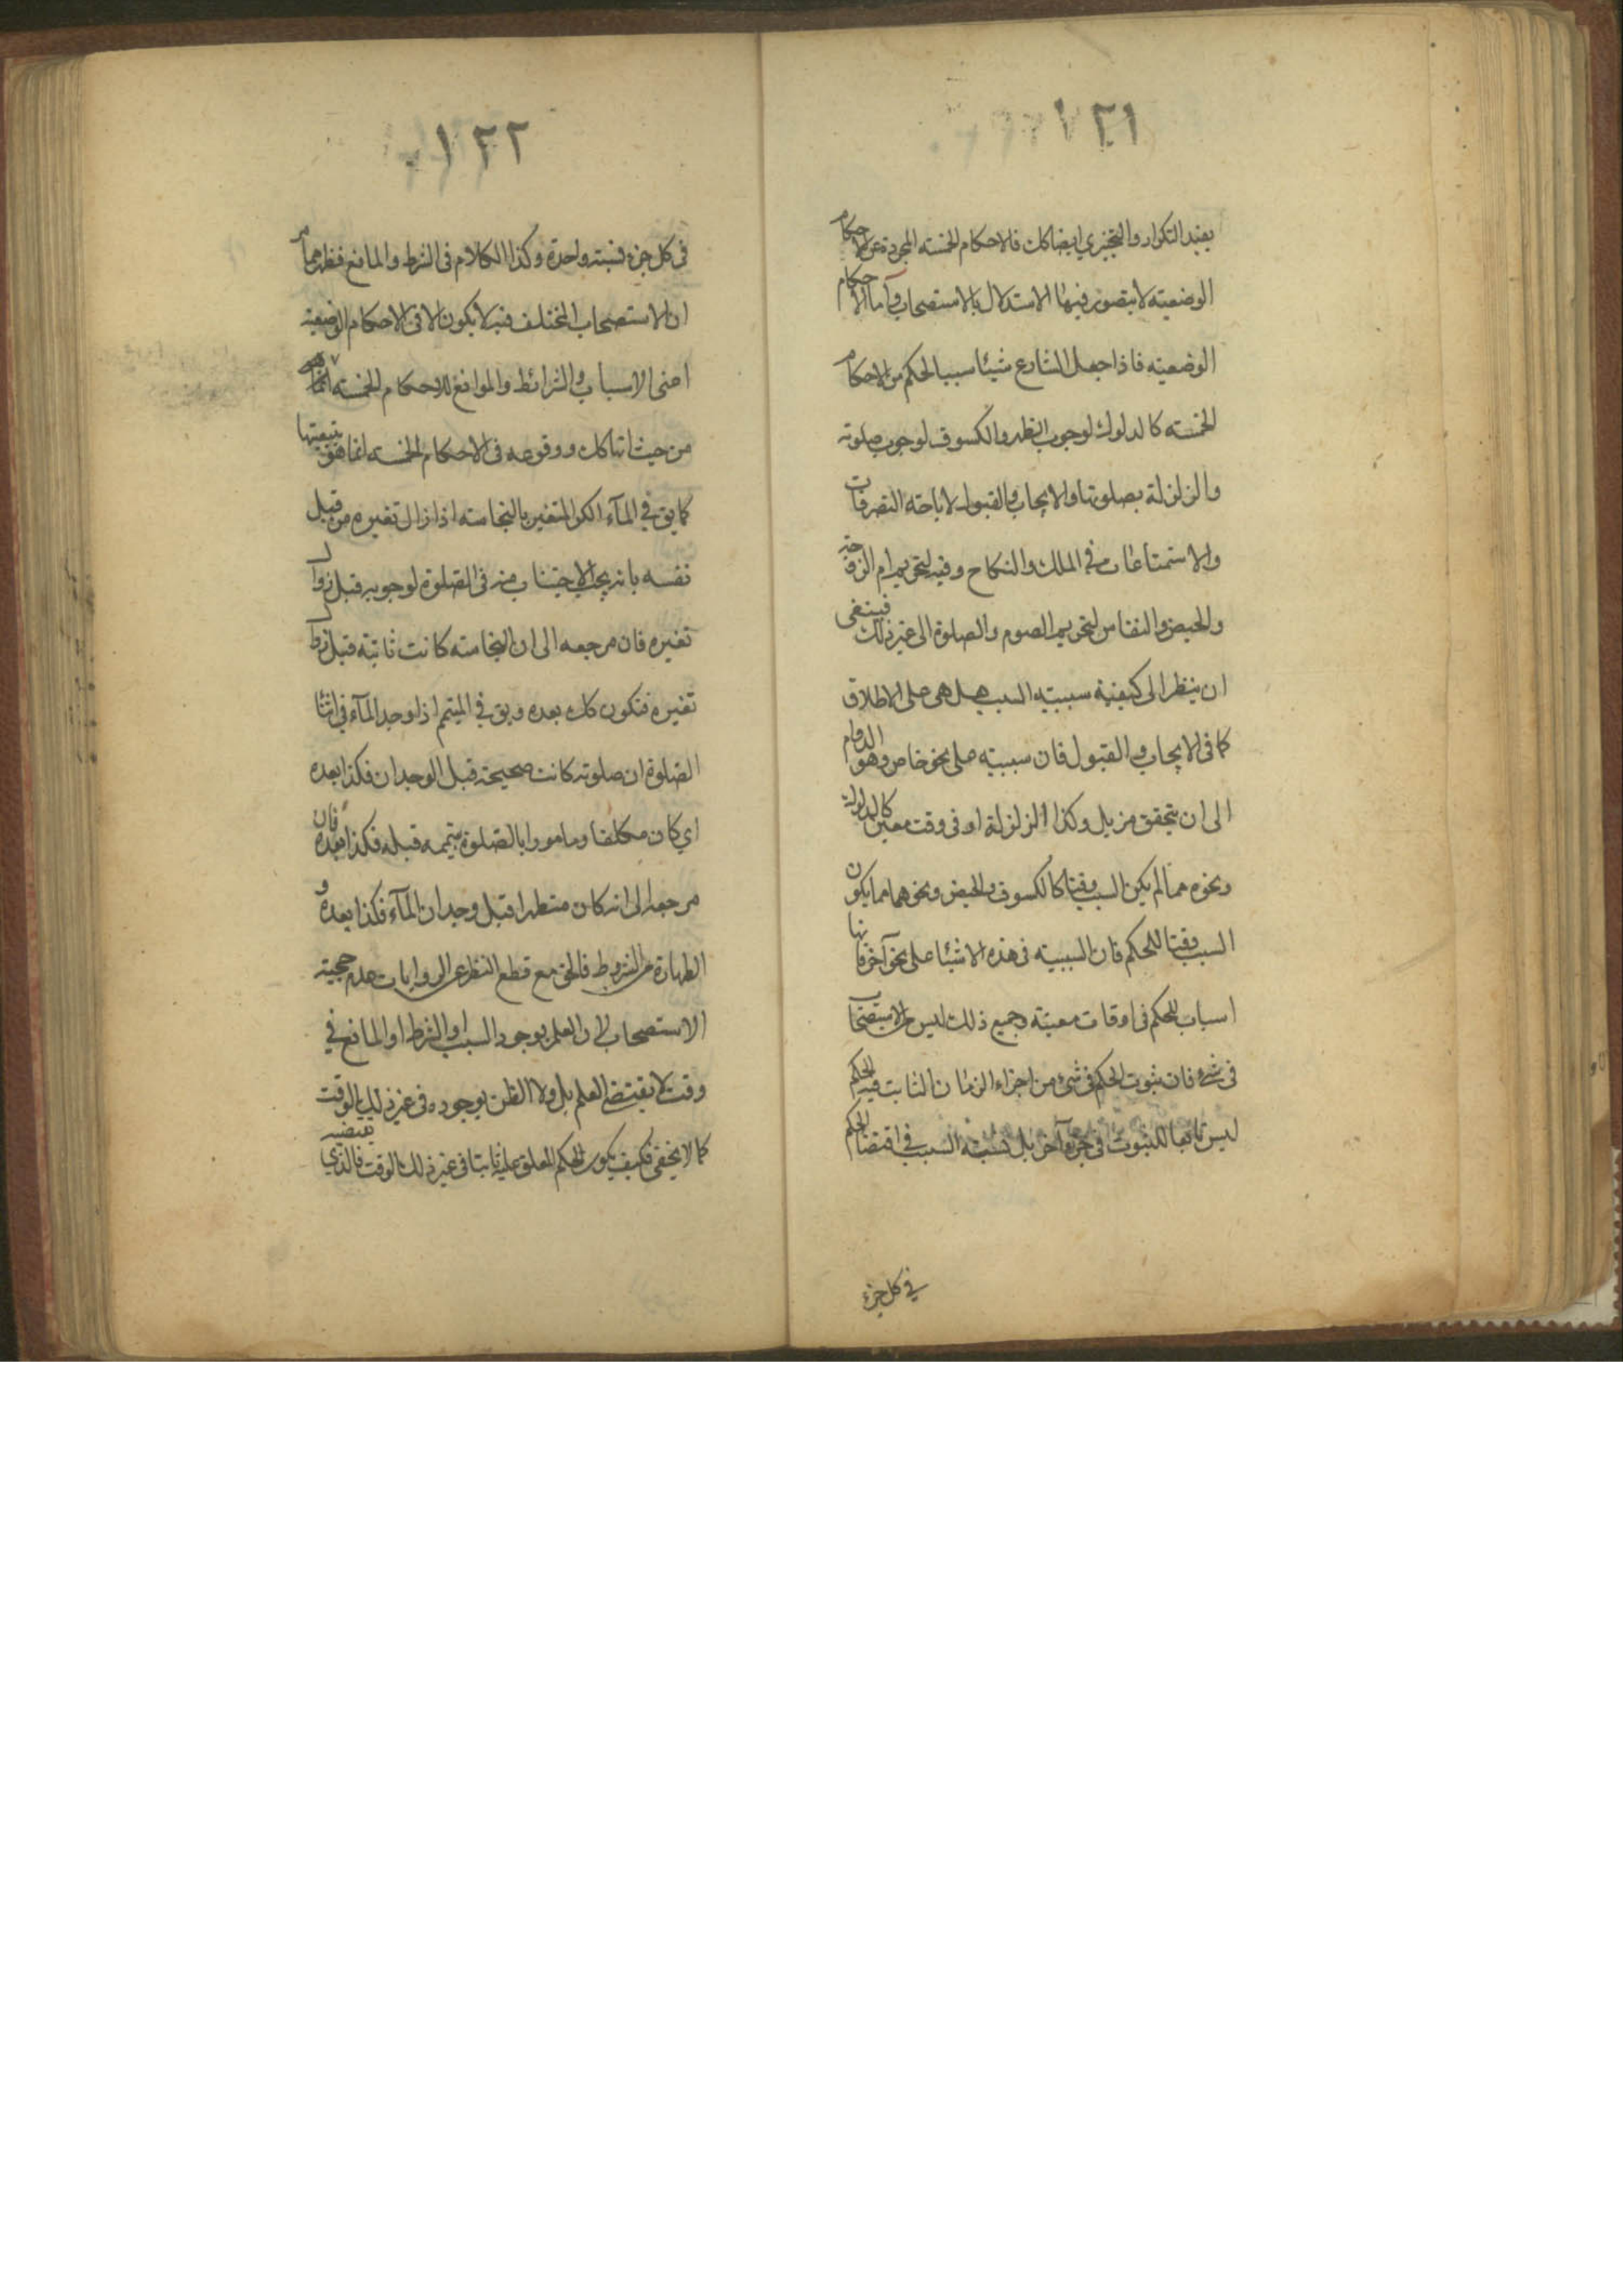 ١٢١
يفيد التكرار والتخييري ايضا كك فالاحكام الخمسه المجردة عن الاحكام
الوضعيته لا يتصور فيها الاستدلال بالاستصحاب وآما الاحكام
الوضعيته فاذا جعل الشارع شيئا سببا لحكم من الاحكام
الخمسته كالدلوك لوجوب الظهر والكسوف لوجوب صلوته
والزلزلة بصلوتها والايجاب والقبول لاباحته التصرفات
والاستمتاعات في الملك والنكاح وفيه لتحريم ام الزوجته
والحيض والنفاس لتحريم الصوم والصلوة الى غير ذلك فينبغى
ان ينظر الى كيفية سببيته السبب هل هى على الاطلاق
كما فى الايجاب والقبول فان سببيته على نحو خاص وهو الدوام
الى ان يتحقق مزيل وكذا الزلزلة او فى وقت معين كالدلوك
ونحوه مما لم يكن السبب وقتا كالكسوف والحيض ونحوهما مما يكون
السبب وقتا للحكم فان السببيته فى هذه الاشيا على نحو آخر فانها
اسباب للحكم فى اوقات معينته وجميع ذلك ليس من الاستصحاب
فى شئ فان ثبوت الحكم فى شئ من اجزاء الزمان الثابت فيه الحكم
ليس تابعا للثبوت فى جزء آخر بل نسبته السبب في اقتضا الحكم
في كل جزء
١٢٢
فى كل جزء نسبته واحدة وكذا الكلام فى الشرط والمانع فظهر مما مر
ان الاستصحاب المختلف فيه لا يكون الا فى الاحكام الوضعيته
اعنى الاسباب والشرائط والموانع للاحكام الخمسته
من حيث انها كك ووقوعه فى الاحكام الخمسه انما هو بتبعيتها
كما يق في المآء الكر المتغير بالنجاسته اذا زال تغيره من قبل
نفسه بانه يجب الاجتناب منه فى الصلوة لوجوبه قبل زوال
تغيره فان مرجعه الى ان النجاسته كانت ثابتة قبل زوال
تغيره فتكون كك بعده ويق في المتيمم اذا وجد المآء في اثنا
الصلوة ان صلوته كانت صحيحته قبل الوجدان فكذا بعده
اي كان مكلفا وماموراً بالصلوة بتيممه قبله فكذا بعده فان
مرجعه الى انه كان متطهرا قبل وجدان المآء فكذا بعده و
الطهارة من الشروط فالحق مع قطع النظر عن الروايات عدم حجيته
الاستصحاب لان العلم بوجود السبب او الشرط او المانع في
وقت لا يقتضي العلم بل ولا الظن بوجوده فى غير ذلك الوقت
كما لا يخفى فكيف يكون الحكم المعلق عليه ثابتا فى غير ذلك الوقت فالذي يقتضيه